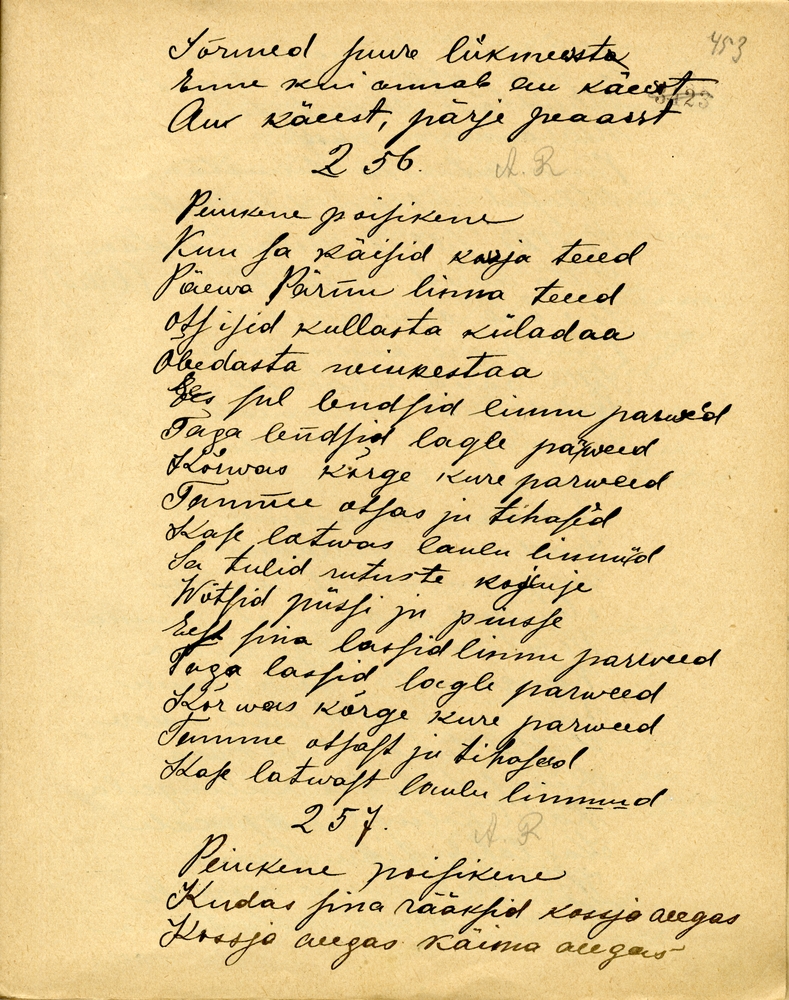 453
Sõrmed suure liikmesta
Enne kui annab au käest
3423
Aux käeest, pärje peaasst
256.
A. R
Peiukene poisikene
Kuu sa käisid kosja teed
Päewa Pärnu linna teed
Otsisid kullasta küladaa
Õbedasta neiukestaa
Ees sul lendsid linnu parwed
Taga lendsid lagle parweed
Kõrwas kõrge kure parweed
Tamme otsas ju tihased
Kase latwas laulu linnud
Sa tulid rutuste kojuje
Wõtsid püssi ju puusse
Eest sina lassid linnu parweed
Taga lassid lagle parweed
Kõrwas kõrge kure parweed
Tamme otsast ju tihased
Kase latwast laulu linnuud
257.
A. R
Peiukene poisikene
Kudas sina rääksid kossja aegas
Kossja aegas käima aegas